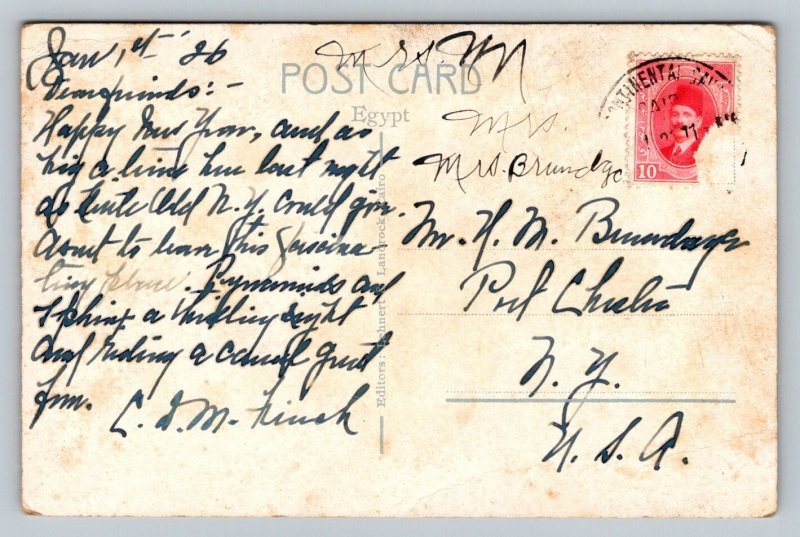 Jan 1st '26
Dear friends:-
Happy New Year, and as
big a time here last night
as little Old N.Y. could give.
Want to leave this fascina-
ting place. Pyramids and
Sphinx a thrilling sight
and riding a camel great
fun.
C. D. M. Finch
POST CARD
Egypt
Editors: Lehnert & Landrock, Cairo
Mrs. M
Mrs.
Mrs. Brundage
CONTINENTAL SAV
CAIR
10
Mr. H. M. Brundage
Port Chester
N. Y.
U. S. A.